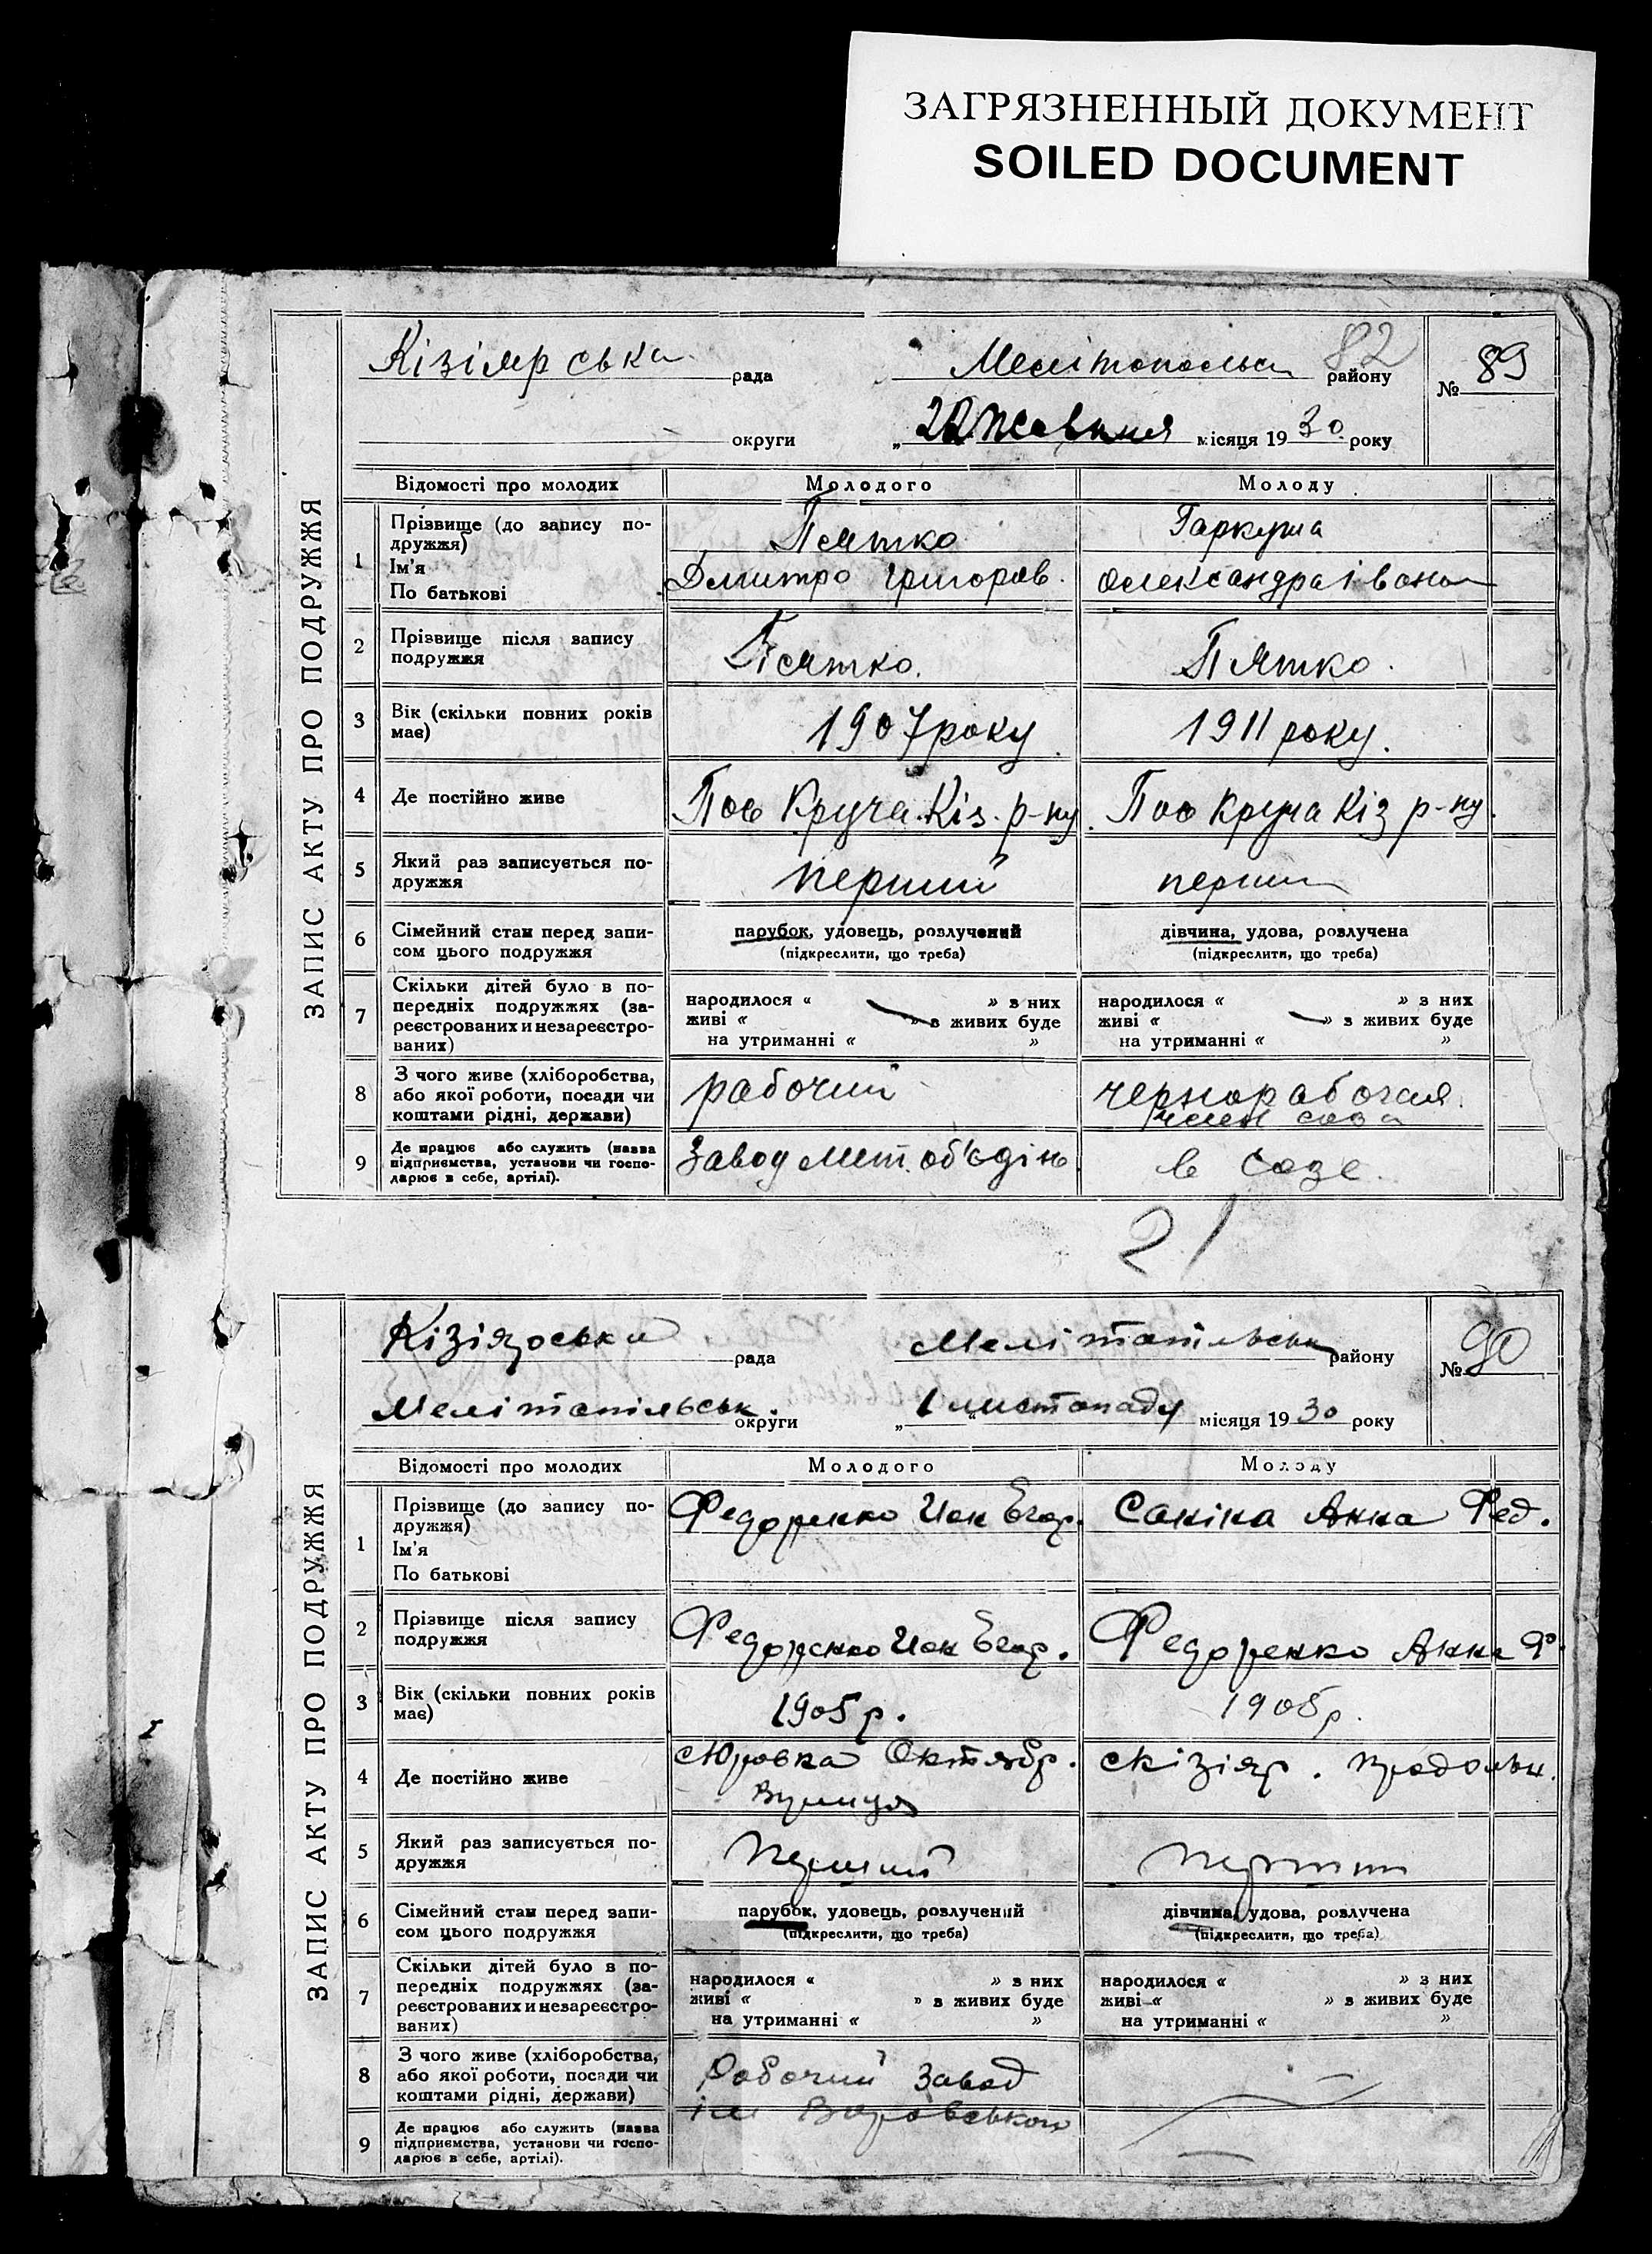 ЗАГРЯЗНЕННЫЙ ДОКУМЕНТ
SOILED DOCUMENT
82
Кізіярська рада Мелітопольськ району № 89
округи „ Жовтня місяця 1930 року
ЗАПИС АКТУ ПРО ПОДРУЖЖЯ
Відомості про молодих Молодого Молоду
1 Прізвище (до запису подружжя) Пятко Гаркуша
Ім'я
По батькові Дмитро Григоров. Олександра Іван
2 Прізвище після запису подружжя Пятко. Пятко.
3 Вік (скільки повних років має) 1907 року 1911 року.
4 Де постійно живе Пос Круча Кіз. р-ну. Пос Круча Кіз р-ну.
5 Який раз записується подружжя перший перши
6 Сімейний стан перед записом цього подружжя парубок, удовець, розлучений дівчина, удова, розлучена
(підкреслити, що треба) (підкреслити, що треба)
7 Скільки дітей було в попередніх подружжях (зареєстрованих и незареєстрованих) народилося « » з них народилося « » з них
живі « » з живих буде живі « » з живих буде
на утриманні « » на утриманні « »
8 З чого живе (хліборобства, або якої роботи, посади чи коштами рідні, держави) рабочий чернорабочая
член соза
9 Де працює або служить (назва підприємства, установи чи господарює в себе, артілі). Завод мет. об'єдінь в созе.
21
Кізіярська рада Мелітопільськ району № 90
Мелітопільськ. округи „ 1 листопаду місяця 1930 року
ЗАПИС АКТУ ПРО ПОДРУЖЖЯ
Відомості про молодих Молодого Молоду
1 Прізвище (до запису подружжя) Федоренко Егор. Саніна Анна Фед.
Ім'я
По батькові
2 Прізвище після запису подружжя Федоренко Егор. Федоренко Анна Ф.
3 Вік (скільки повних років має) 1905 р. 1905 р.
4 Де постійно живе с Юровка Октябр. с Кізіяр. Продольн.
Вулиця
5 Який раз записується подружжя Перший Перший
6 Сімейний стан перед записом цього подружжя парубок, удовець, розлучений дівчина, удова, розлучена
(підкреслити, що треба) (підкреслити, що треба)
7 Скільки дітей було в попередніх подружжях (зареєстрованих и незареєстрованих) народилося « » з них народилося « » з них
живі « » з живих буде живі « » з живих буде
на утриманні « » на утриманні « »
8 З чого живе (хліборобства, або якої роботи, посади чи коштами рідні, держави) Робочий завод
ім Воровського
9 Де працює або служить (назва підприємства, установи чи господарює в себе, артілі).